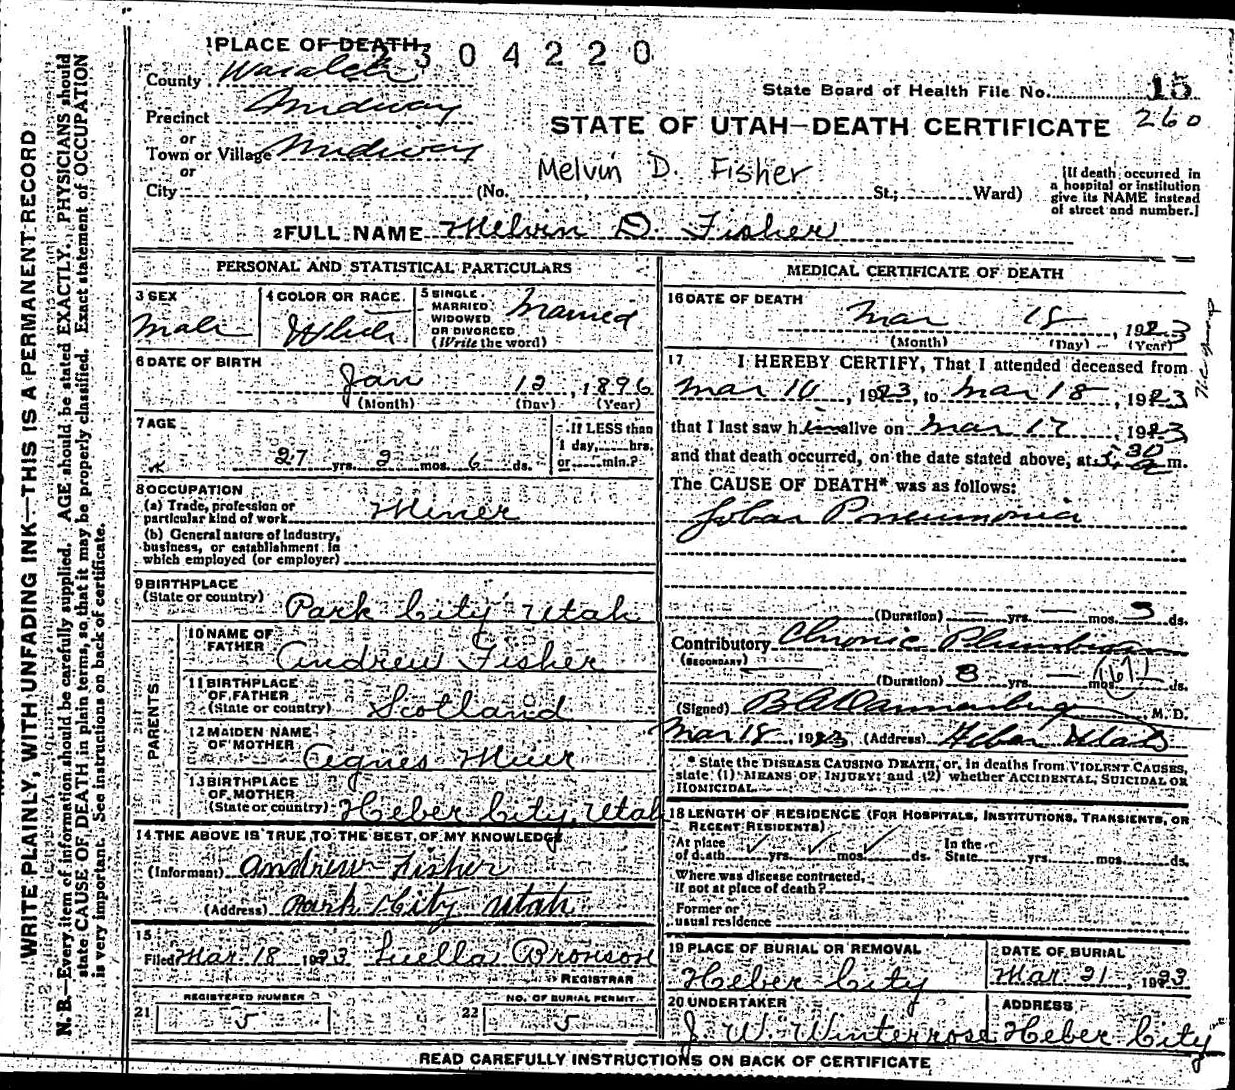 1 PLACE OF DEATH 2304220
County Wasatch
State Board of Health File No. 15
Precinct Midway
260
STATE OF UTAH—DEATH CERTIFICATE
or
Town or Village Midway
or
Melvin D. Fisher
City (No. St.; Ward)
[If death occurred in
a hospital or institution
give its NAME instead
of street and number.]
2 FULL NAME Melvin D. Fisher
PERSONAL AND STATISTICAL PARTICULARS
3 SEX
Male
4 COLOR OR RACE
White
5 SINGLE
MARRIED
WIDOWED
OR DIVORCED
(Write the word)
Married
6 DATE OF BIRTH
Jan 12, 1896
(Month) (Day) (Year)
7 AGE
27 yrs. 2 mos. 6 ds.
If LESS than
1 day, hrs.
or min.?
8 OCCUPATION
(a) Trade, profession or
particular kind of work Miner
(b) General nature of Industry,
business, or establishment in
which employed (or employer)
9 BIRTHPLACE
(State or country) Park City Utah
PARENTS
10 NAME OF
FATHER Andrew Fisher
11 BIRTHPLACE
OF FATHER
(State or country) Scotland
12 MAIDEN NAME
OF MOTHER Agnes Muir
13 BIRTHPLACE
OF MOTHER
(State or country) Heber City, Utah
14 THE ABOVE IS TRUE TO THE BEST OF MY KNOWLEDGE
(Informant) Andrew Fisher
(Address) Park City Utah
15
Filed Mar. 18 1923 Luella Bronson
REGISTRAR
REGISTERED NUMBER
21 5
NO. OF BURIAL PERMIT
22 5
MEDICAL CERTIFICATE OF DEATH
16 DATE OF DEATH
Mar 18, 1923
(Month) (Day) (Year)
17 I HEREBY CERTIFY, That I attended deceased from
Mar 10, 1923, to Mar 18, 1923
that I last saw him alive on Mar 17, 1923
and that death occurred, on the date stated above, at 30 m.
The CAUSE OF DEATH* was as follows:
Lobar Pneumonia
(Duration) — yrs. — mos. ds.
Contributory Chronic Plumbism
(SECONDARY)
(Duration) 8 yrs. — mos. ds.
(Signed) M. D.
Mar 18, 1923 (Address) Heber Utah
* State the DISEASE CAUSING DEATH, or, in deaths from VIOLENT CAUSES,
state (1) MEANS OF INJURY; and (2) whether ACCIDENTAL, SUICIDAL OR
HOMICIDAL.
18 LENGTH OF RESIDENCE (FOR HOSPITALS, INSTITUTIONS, TRANSIENTS, OR
RECENT RESIDENTS)
At place
of death yrs. mos. ds.
In the
State yrs. mos. ds.
Where was disease contracted,
if not at place of death?
Former or
usual residence
19 PLACE OF BURIAL OR REMOVAL
Heber City
DATE OF BURIAL
Mar. 21, 1923
20 UNDERTAKER
J. W. Winterrose
ADDRESS
Heber City
READ CAREFULLY INSTRUCTIONS ON BACK OF CERTIFICATE
WRITE PLAINLY, WITH UNFADING INK—THIS IS A PERMANENT RECORD
N. B.—Every item of information should be carefully supplied. AGE should be stated EXACTLY. PHYSICIANS should
state CAUSE OF DEATH in plain terms, so that it may be properly classified. Exact statement of OCCUPATION
is very important. See instructions on back of certificate.